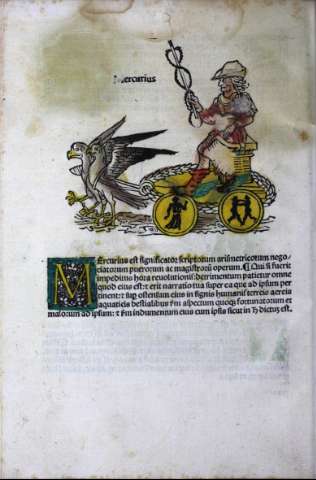 Mercurius
MErcurius est significator scriptorum arismetricorum nego
ciatorum puerorum ac magistrorũ operum. ¶ Qui si fuerit
impeditus hora reuolutionis: detrimentum patietur omne
quod eius est: erit narratio tua super ea que ad ipsum per
tinent: iux ostensam eius in signis humanis terreis aereis
aquaticis bestialibus fm aspectum quoqȝ fortunatorum et
malorum ad ipsum: fm indumentum eius cum ipsis sicut in ♄ dictuȝ est.